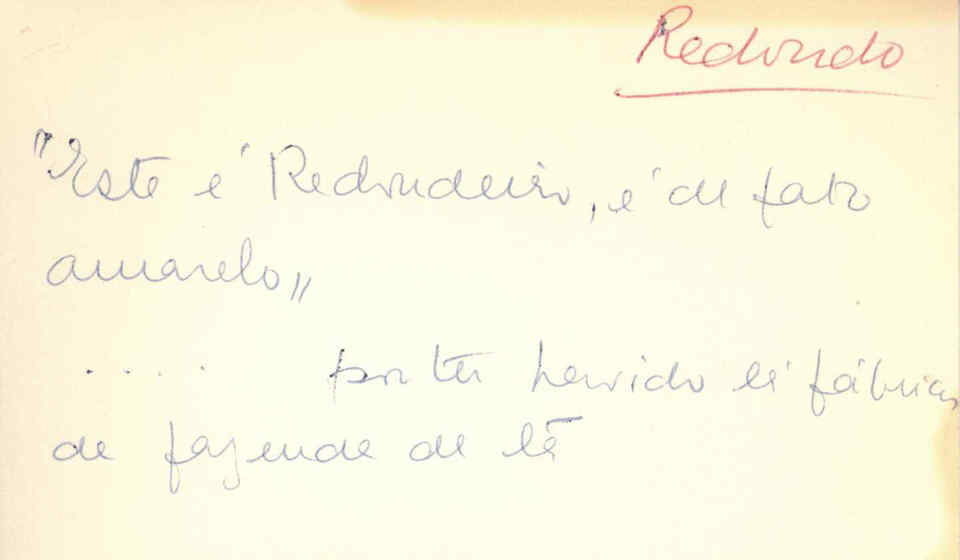 Redondo
"Este é Redondeiro, é de fato
amarelo"
.... por ter havido lá fábricas
de fazenda de lã